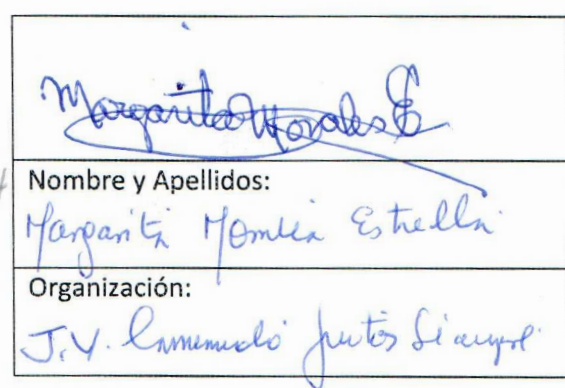 Margarita Morales E
Nombre y Apellidos:
Margarita Estrella
Organización:
J.V. Juntos Siempre